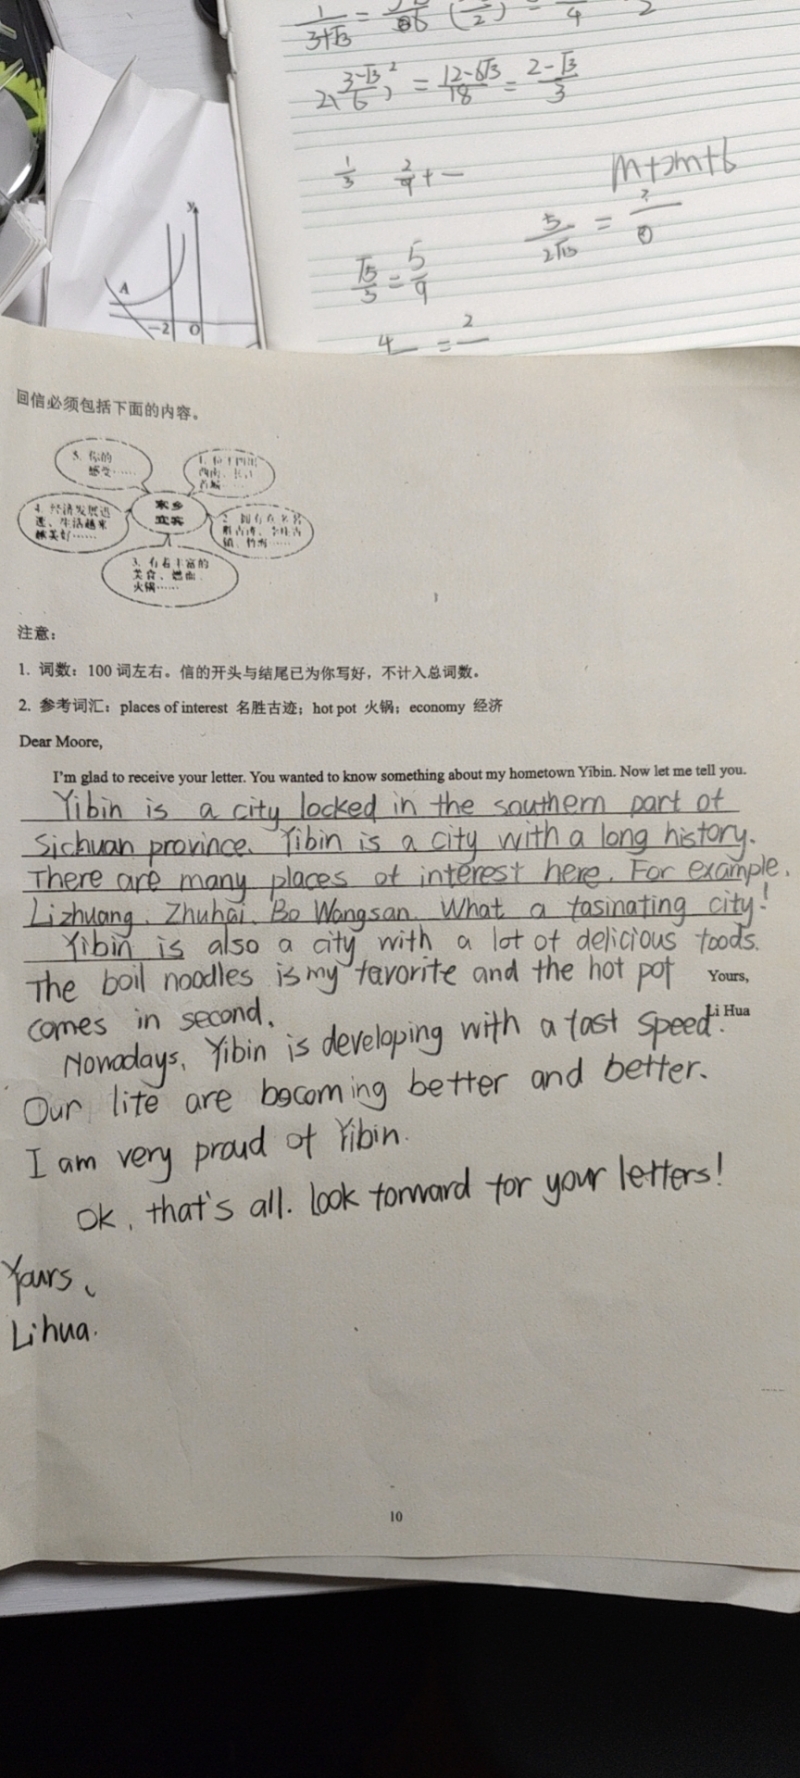 1/(3+√3) =
2(3-√3/6)² = 12-6√3/18 = 2-√3/3
1/3 2/9 + —
m+2m+6
√5/5 = 5/9
5/2√15 =
4 = 2
y
A
-2 O
回信必须包括下面的内容。
5. 你的
感受……
家乡
宜宾
4. 经济发展迅
速、生活越来
越美好……
3. 有着丰富的
美食、燃面、
火锅……
注意：
1. 词数：100 词左右。信的开头与结尾已为你写好，不计入总词数。
2. 参考词汇：places of interest 名胜古迹；hot pot 火锅；economy 经济
Dear Moore,
I'm glad to receive your letter. You wanted to know something about my hometown Yibin. Now let me tell you.
Yibin is a city locked in the southern part of
Sichuan province. Yibin is a city with a long history.
There are many places of interest here. For example,
Lizhuang, Zhuhai, Bo Wangsan. What a fasinating city!
Yibin is also a city with a lot of delicious foods.
The boil noodles is my favorite and the hot pot
Yours,
comes in second.
Li Hua
Nowadays, Yibin is developing with a fast speed.
Our life are becoming better and better.
I am very proud of Yibin.
Ok, that's all. look forward for your letters!
Yours,
Lihua.
10